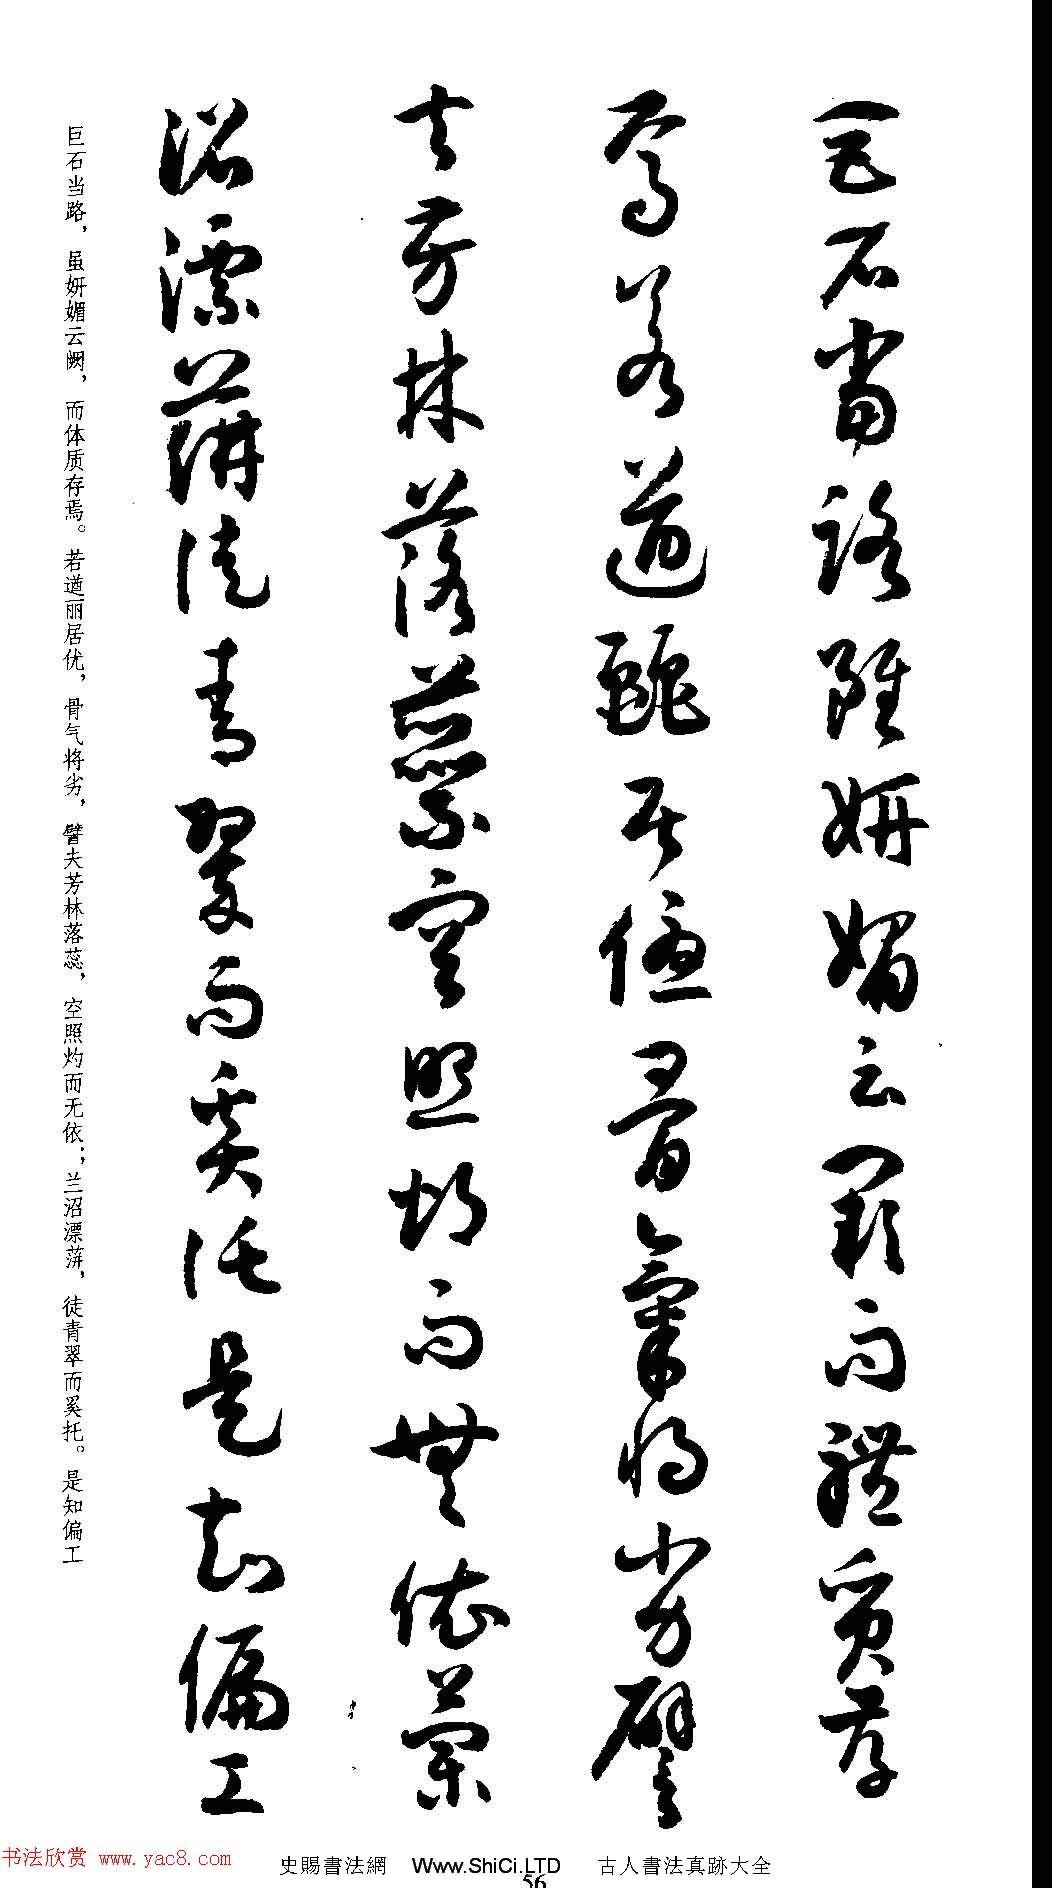 巨石當路雖妍媚云闕而體質存
焉若遒麗居優骨氣將劣譬
夫芳林落蘂空照灼而無依蘭
沼漂蓱徒青翠而奚託是知偏工
巨石当路，虽妍媚云阙，而体质存焉。若遒丽居优，骨气将劣，譬夫芳林落蕊，空照灼而无依；兰沼漂蓱，徒青翠而奚托。是知偏工
书法欣赏 www.yac8.com
史賜書法網 Www.ShiCi.LTD 古人書法真跡大全
56